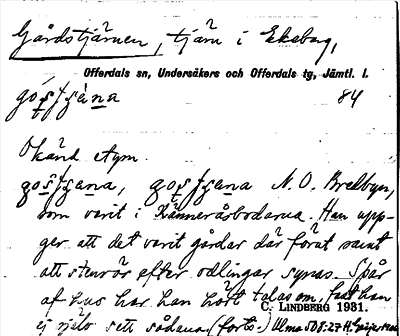 Gårdstjärnen, tjärn i Ekeberg,
Offerdals sn, Undersåkers och Offerdals tg, Jämtl. l.
84
Okänd etym.
N. O. Bredbyn,
som varit i Ränneråsbodarna. Han upp-
ger att det varit gårdar där förut samt
att stenrör efter odlingar synas. Spår
af hus har han hört talas om, fast han
C. LINDBERG 1931.
ej själv sett sådana. (forts.) Ulma 508:27 H. Geijer